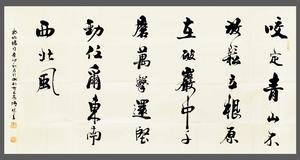 咬定青山不
放鬆立根原
在破巖中千
磨萬擊還堅
勁任爾東南
西北風